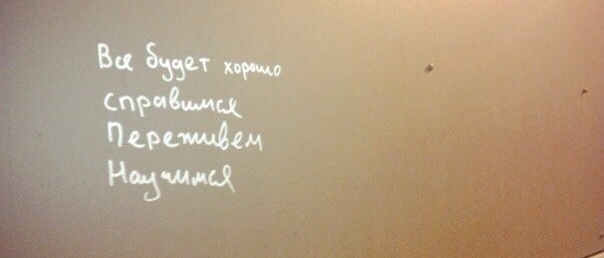 Все будет хорошо
справимся
Переживем
Научимся